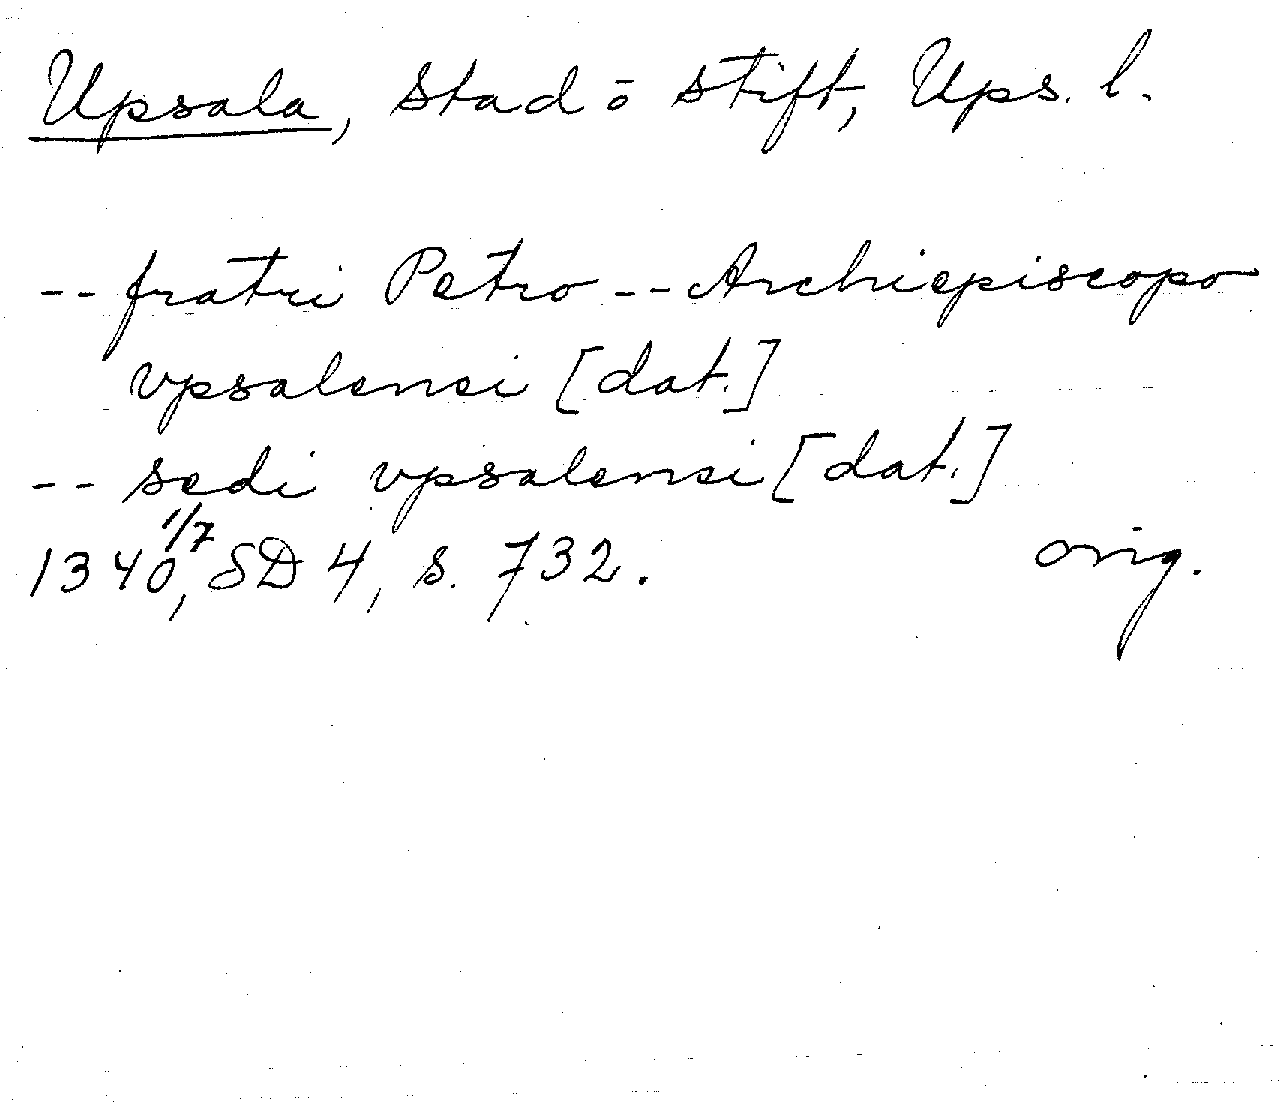 Upsala, stad ō stift, Ups. l.
-- fratri Petro -- Archiepiscopo
vpsalensi [dat.]
-- sedi vpsalensi [dat.]
1340 1/7, SD 4, s. 732. orig.